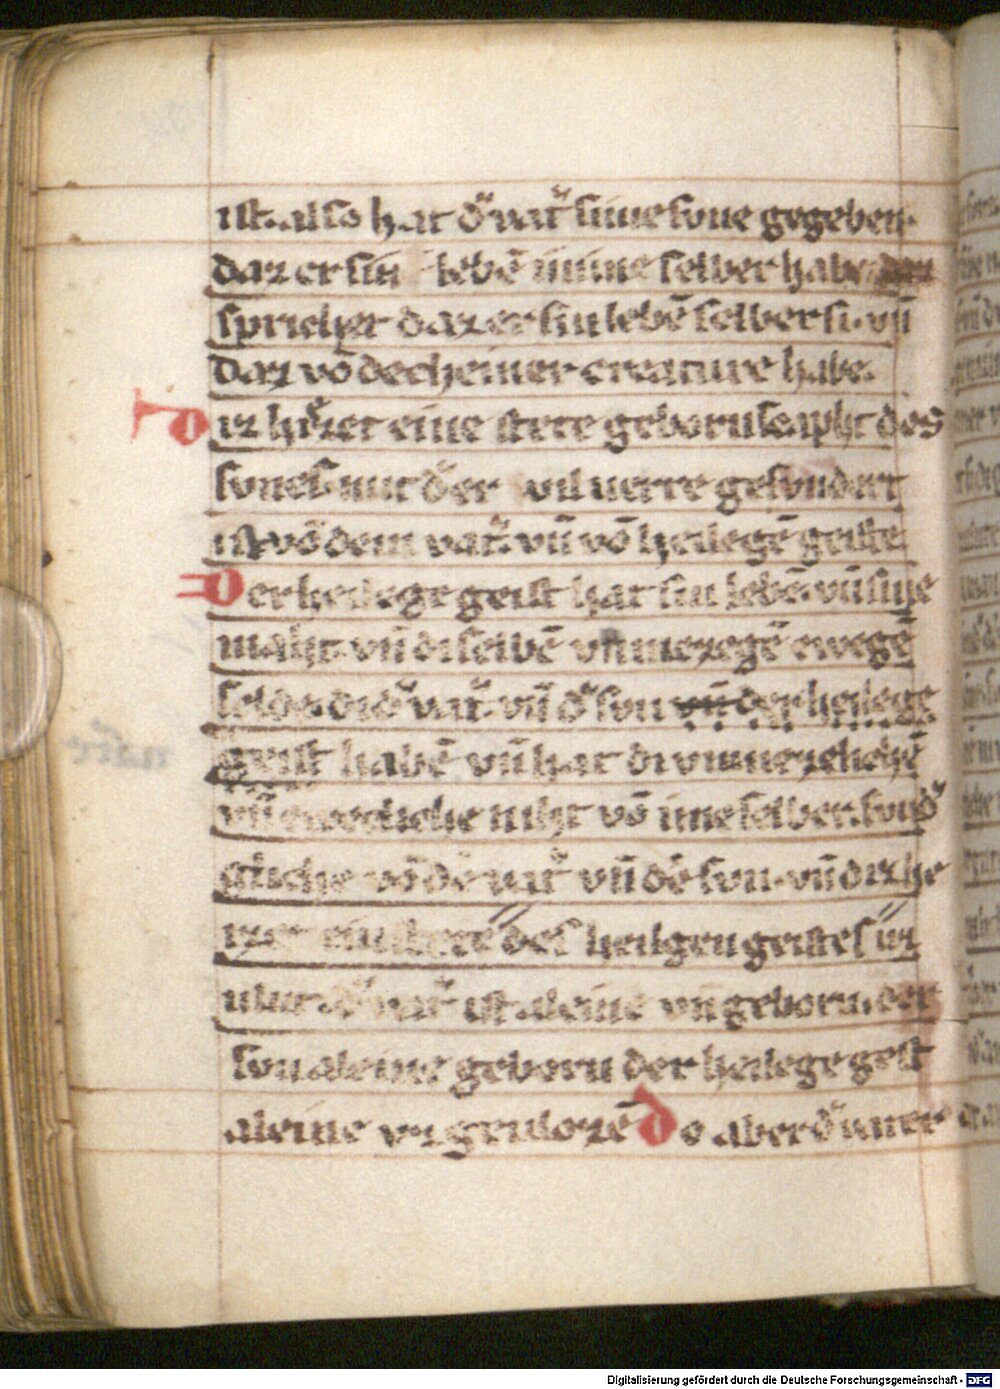 ist. also hat dˀ vatˀ sime sone gegeben.
daz er sin lebē in ime selber habe.
sprichet daz er sin lebē selber si. vn̄
daz vō decheiner creature habe.
Diz heizet eine stete gebornscapht des
sones. mit dˀ er vil uerre gesvndert
ist vō dem vatˀ. vn̄ vō heilegē geiste.
Der heilege geist hat sin lebē. vn̄ sine
maht. vn̄ di selbē vnmezegē ewegē
selde. di dˀ vatˀ. vn̄ dˀ son vn̄ der heilege
geist habē vn̄ hat di vnmezlichē
vn̄ eweclichē niht vō ime selber. sondˀ
gliche vō dē vatˀ vn̄ dē son. vn̄ diz he
izet ein stete des heilgen geistes uz
uluz dˀ vatˀ ist aleine vngeborn. der
son aleine geborn der heilege geist
aleine vz geulozē Do aber dˀ uater